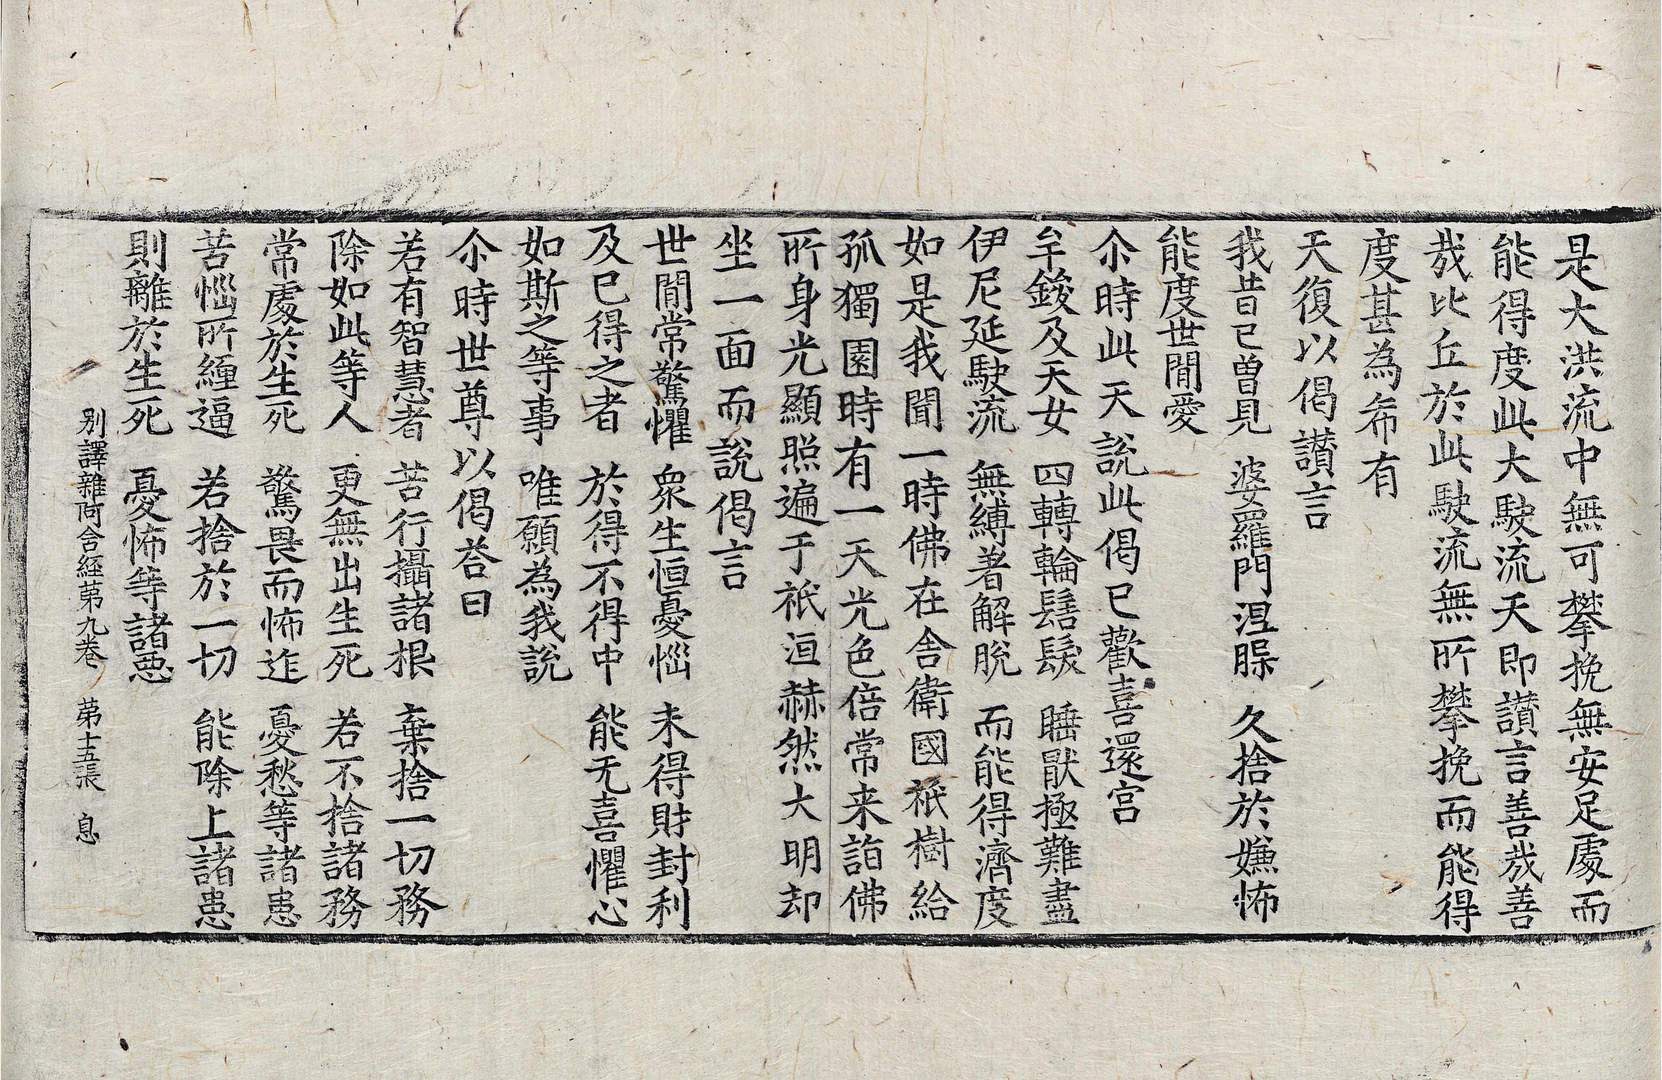 是大洪流中無可攀挽無安足處而
能得度此大駛流天即讃言善㢤善
㢤比丘於此駛流無所攀挽而能得
度甚為希有
天復以偈讃言
我昔已曽見　婆羅門涅槃　久捨於嫌怖
能度世間愛
尒時此天說此偈已歡喜還宫
牟鋑及天女　四轉輪髻髮　睡猒極難盡
伊尼延駛流　無縛著解脫　而能得濟度
如是我聞一時佛在舍衛國祇樹給
孤獨園時有一天光色倍常来詣佛
所身光顯照遍于祇洹赫然大明却
坐一面而說偈言
世間常驚懼　衆生恒憂惱　未得財封利
及已得之者　於得不得中　能无喜懼心
如斯之等事　唯願為我說
尒時世尊以偈荅曰
若有智慧者　苦行攝諸根　棄捨一切務
除如此等人　更無出生死　若不捨諸務
常處於生死　驚畏而怖迮　憂愁等諸患
苦惱所纏逼　若捨於一切　能除上諸患
則離於生死　憂怖等諸惡
別譯雜阿含経苐九巻　苐十五張　息